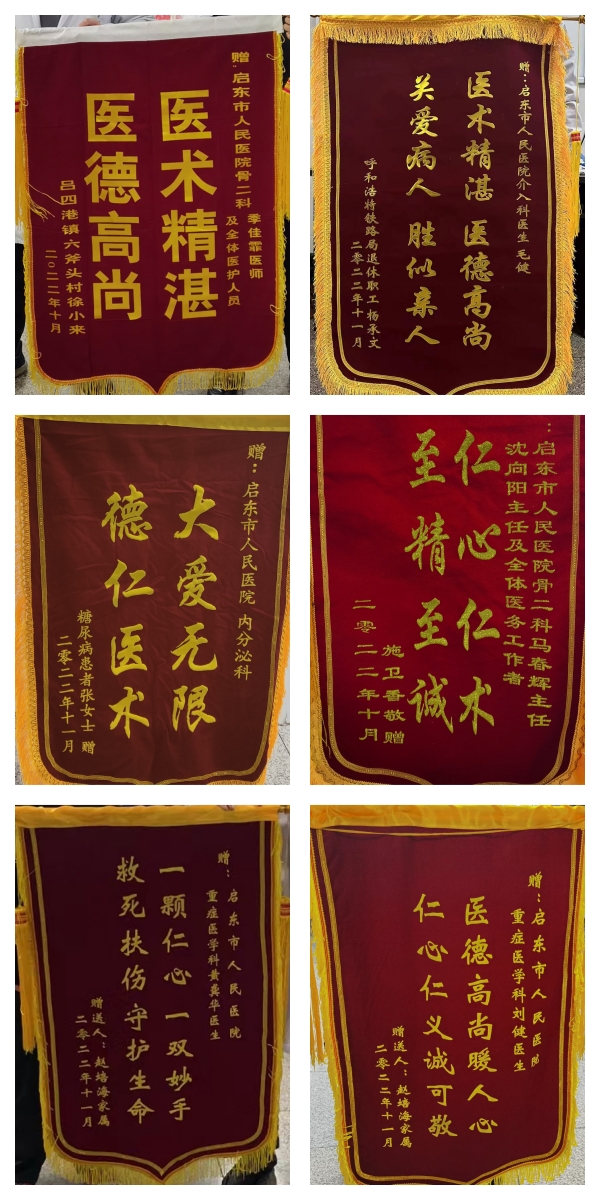 赠：启东市人民医院骨二科
季佳霏医师
及全体医护人员
医术精湛
医德高尚
吕四港镇六斧头村徐小来
二〇二二年十月
赠：启东市人民医院介入科医生 毛健
医术精湛 医德高尚
关爱病人 胜似亲人
呼和浩特铁路局退休职工 杨承文
二零二二年十一月
赠：启东市人民医院 内分泌科
大爱无限
德仁医术
糖尿病患者张女士 赠
二零二二年十一月
：启东市人民医院骨二科马春辉主任
沈向阳主任及全体医务工作者
仁心仁术
至精至诚
施卫香敬赠
二零二二年十月
赠：启东市人民医院
重症医学科黄龚华医生
一颗仁心一双妙手
救死扶伤守护生命
赠送人：赵培海家属
二零二二年十一月
赠：启东市人民医院
重症医学科刘健医生
医德高尚暖人心
仁心仁义诚可敬
赠送人：赵培海家属
二零二二年十一月